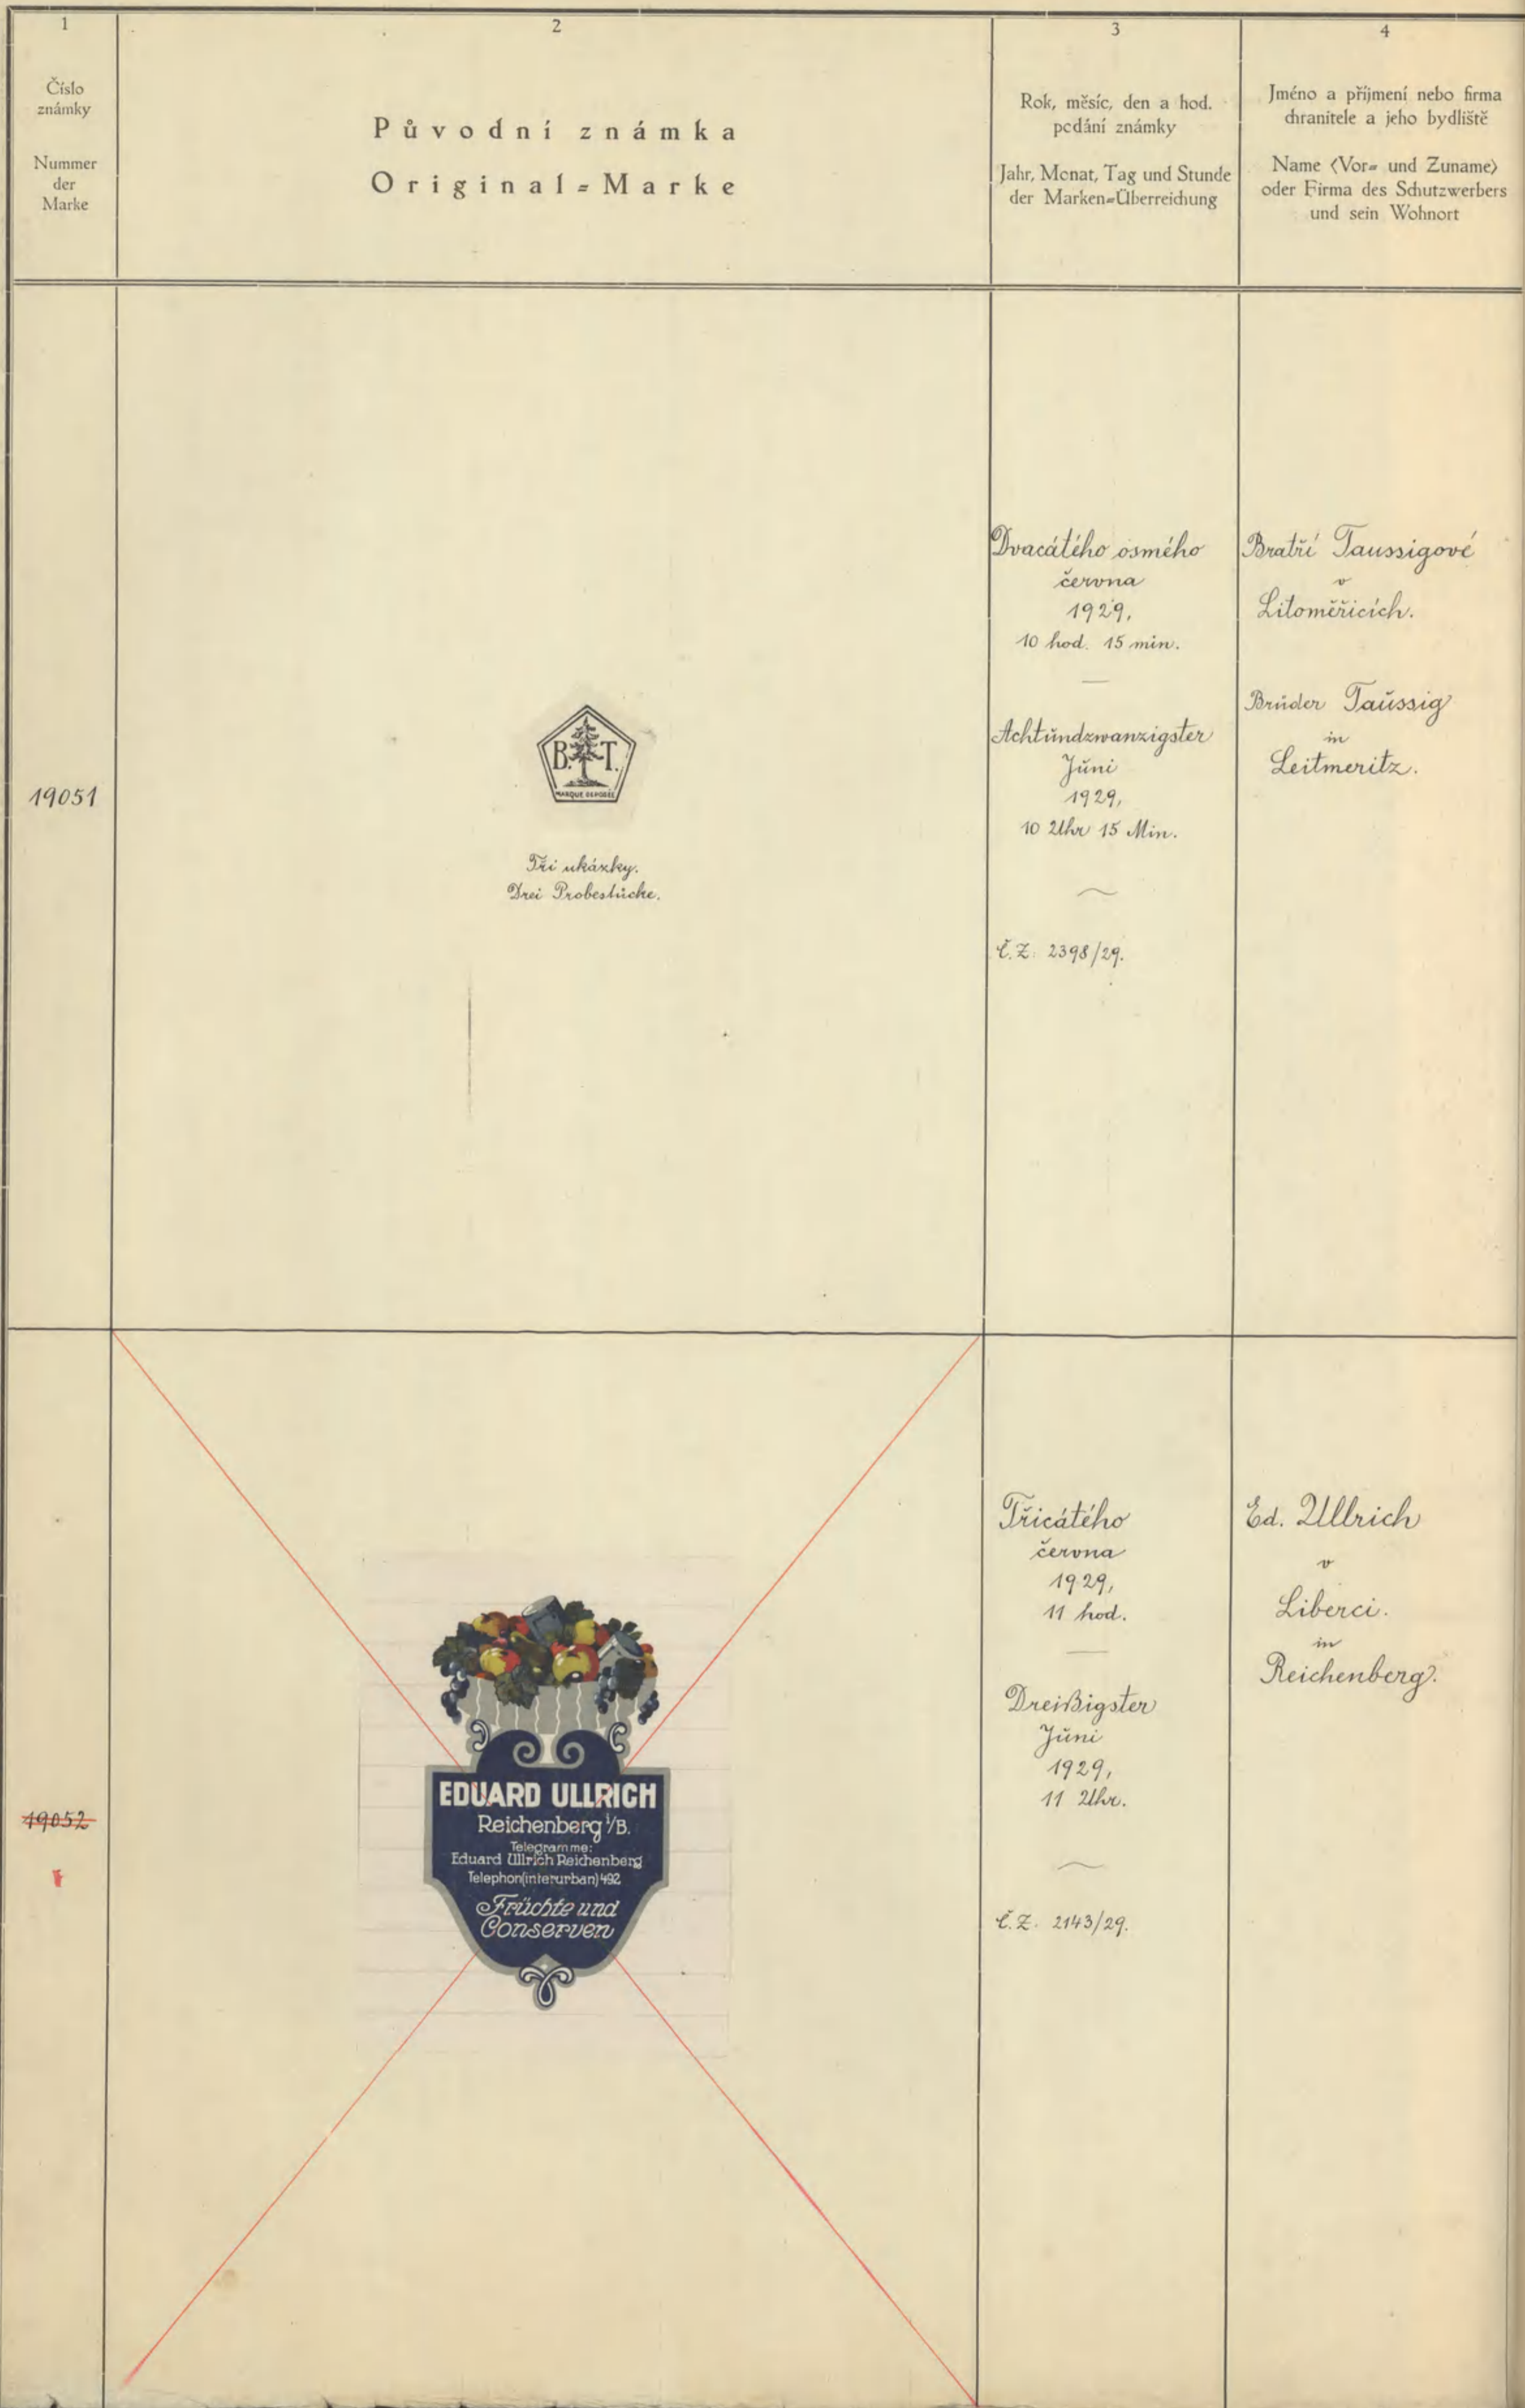 1
2
3
4
Číslo
známky
Nummer
der
Marke
Původní známka
Original=Marke
Rok, měsíc, den a hod.
podání známky
Jahr, Monat, Tag und Stunde
der Marken=Überreichung
Jméno a příjmení nebo firma
chranitele a jeho bydliště
Name <Vor= und Zuname>
oder Firma des Schutzwerbers
und sein Wohnort
19051
B. T.
MARQUE DEPOSÉE
Tři ukázky.
Drei Probestücke.
Dvacátého osmého
června
1929,
10 hod. 15 min.
Achtundzwanzigster
Juni
1929,
10 Uhr 15 Min.
Č.Z. 2398/29.
Bratří Taussigové
v
Litoměřicích.
Brüder Taussig
in
Leitmeritz.
19052
EDUARD ULLRICH
Reichenberg i/B.
Telegramme:
Eduard Ullrich Reichenberg
Telephon(interurban)492
Früchte und
Conserven
Třicátého
června
1929,
11 hod.
Dreißigster
Juni
1929,
11 Uhr.
Č.Z. 2143/29.
Ed. Ullrich
v
Liberci.
in
Reichenberg.